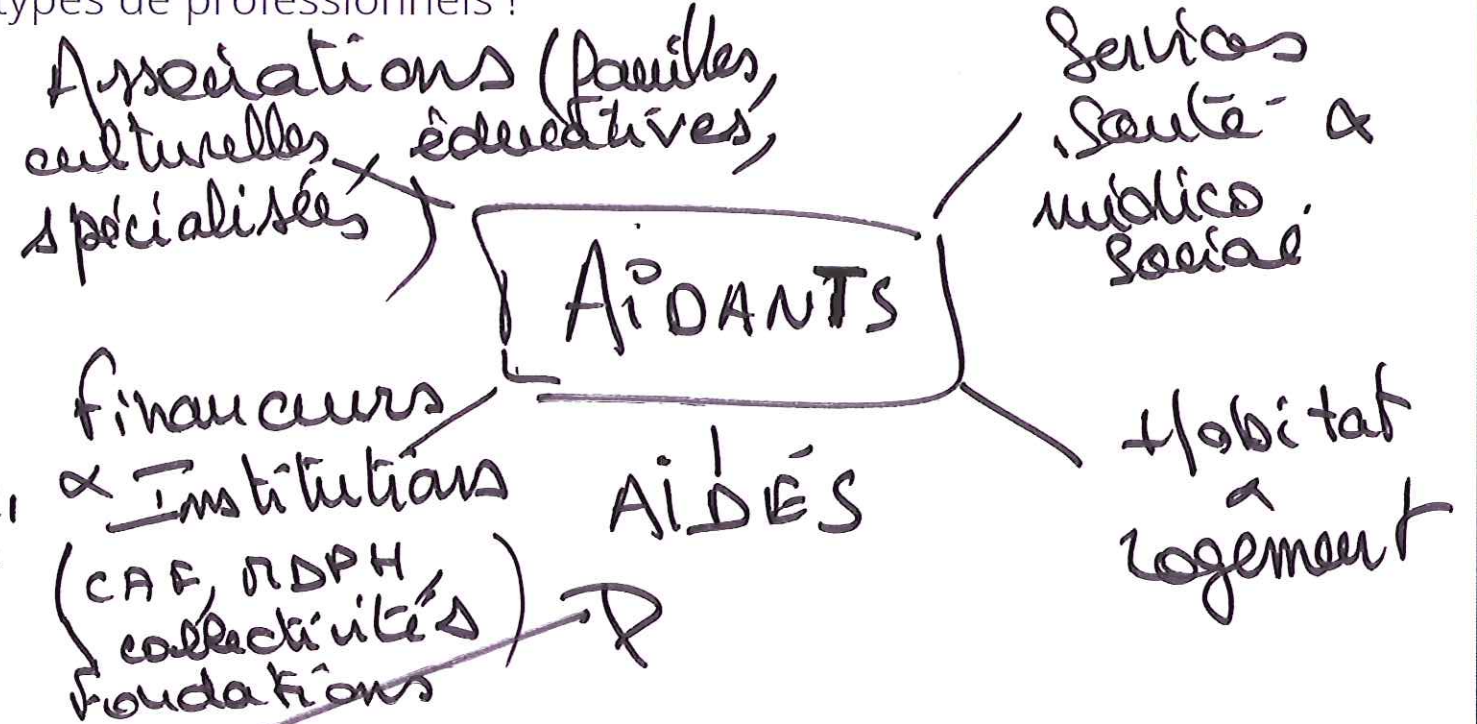 types de professionnels !
Associations (familles,
culturelles, éducatives,
spécialisées)
Services
Santé &
médico
Social
AiDANTS
financeurs
& Institutions
(CAF, MDPH,
collectivités)
Fondations
AiDÉS
Habitat
&
logement